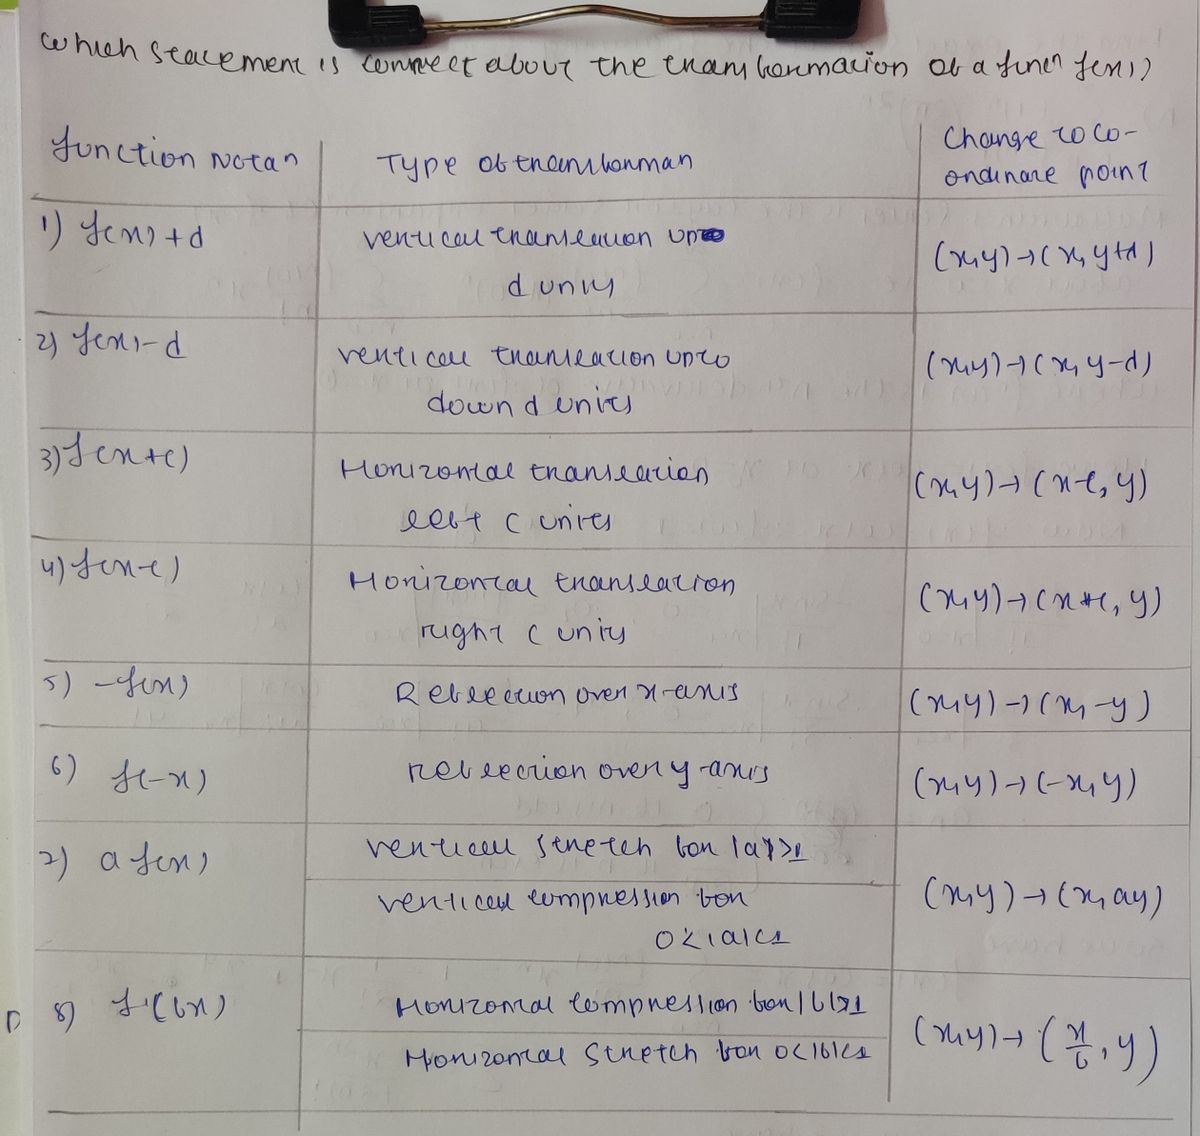 which statement is correct about the transformation of a funcn f(x)?
function Notan
Type of transforman
Change to co-
ordinate point
1) f(x)+d
vertical translation up
d units
(x,y)→(x, y+d)
2) f(x)-d
vertical translation upto
down d units
(x,y)→(x, y-d)
3) f(x+c)
Horizontal translation
left c units
(x,y)→(x-c, y)
4) f(x-c)
Horizontal translation
right c units
(x,y)→(x+c, y)
5) -f(x)
Reflection over x-axis
(x,y)→(x, -y)
6) f(-x)
reflection over y-axis
(x,y)→(-x, y)
7) a f(x)
vertical stretch for |a|>1
vertical compression for
0<|a|<1
(x,y)→(x, ay)
8) f(bx)
Horizontal compression for |b|>1
Horizontal Stretch for 0<|b|<1
(x,y)→(x/b, y)